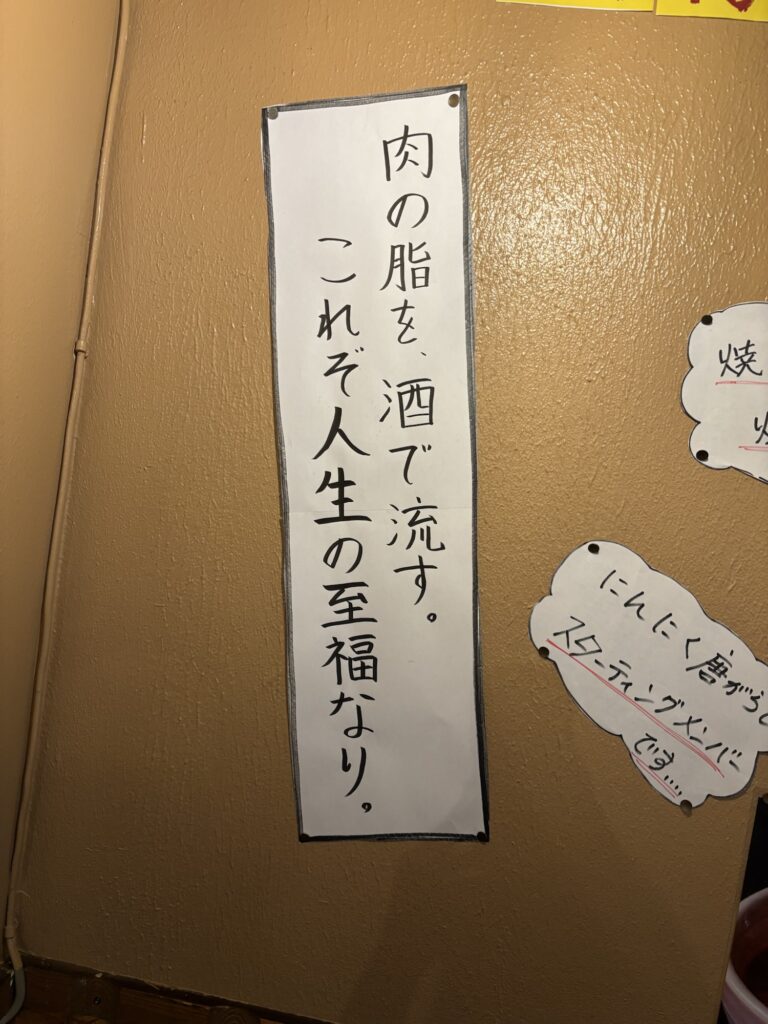 肉の脂を、酒で流す。
これぞ人生の至福なり。
焼
にんにく唐がらし
スターティングメンバー
です....